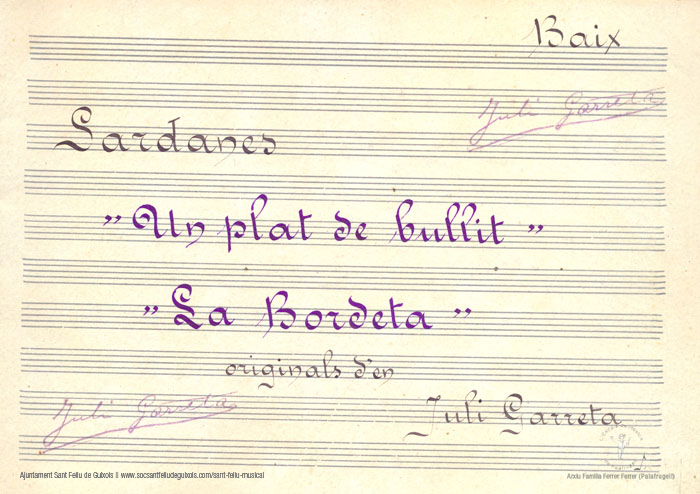 Baix
Juli Garreta
Sardanes
" Un plat de bullit "
" La Bordeta "
originals d'en
Juli Garreta
Juli Garreta
Ajuntament Sant Feliu de Guíxols || www.socsantfeliudeguixols.com/sant-feliu-musical
Arxiu Família Ferrer Ferrer (Palafrugell)